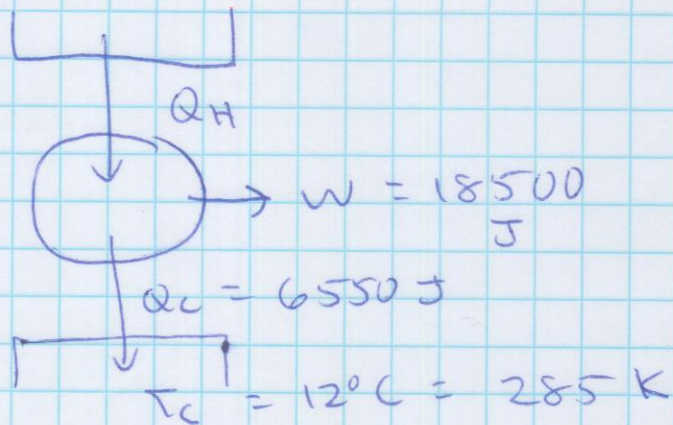 QH
W = 18500
J
Qc = 6550 J
Tc = 12°C = 285 K